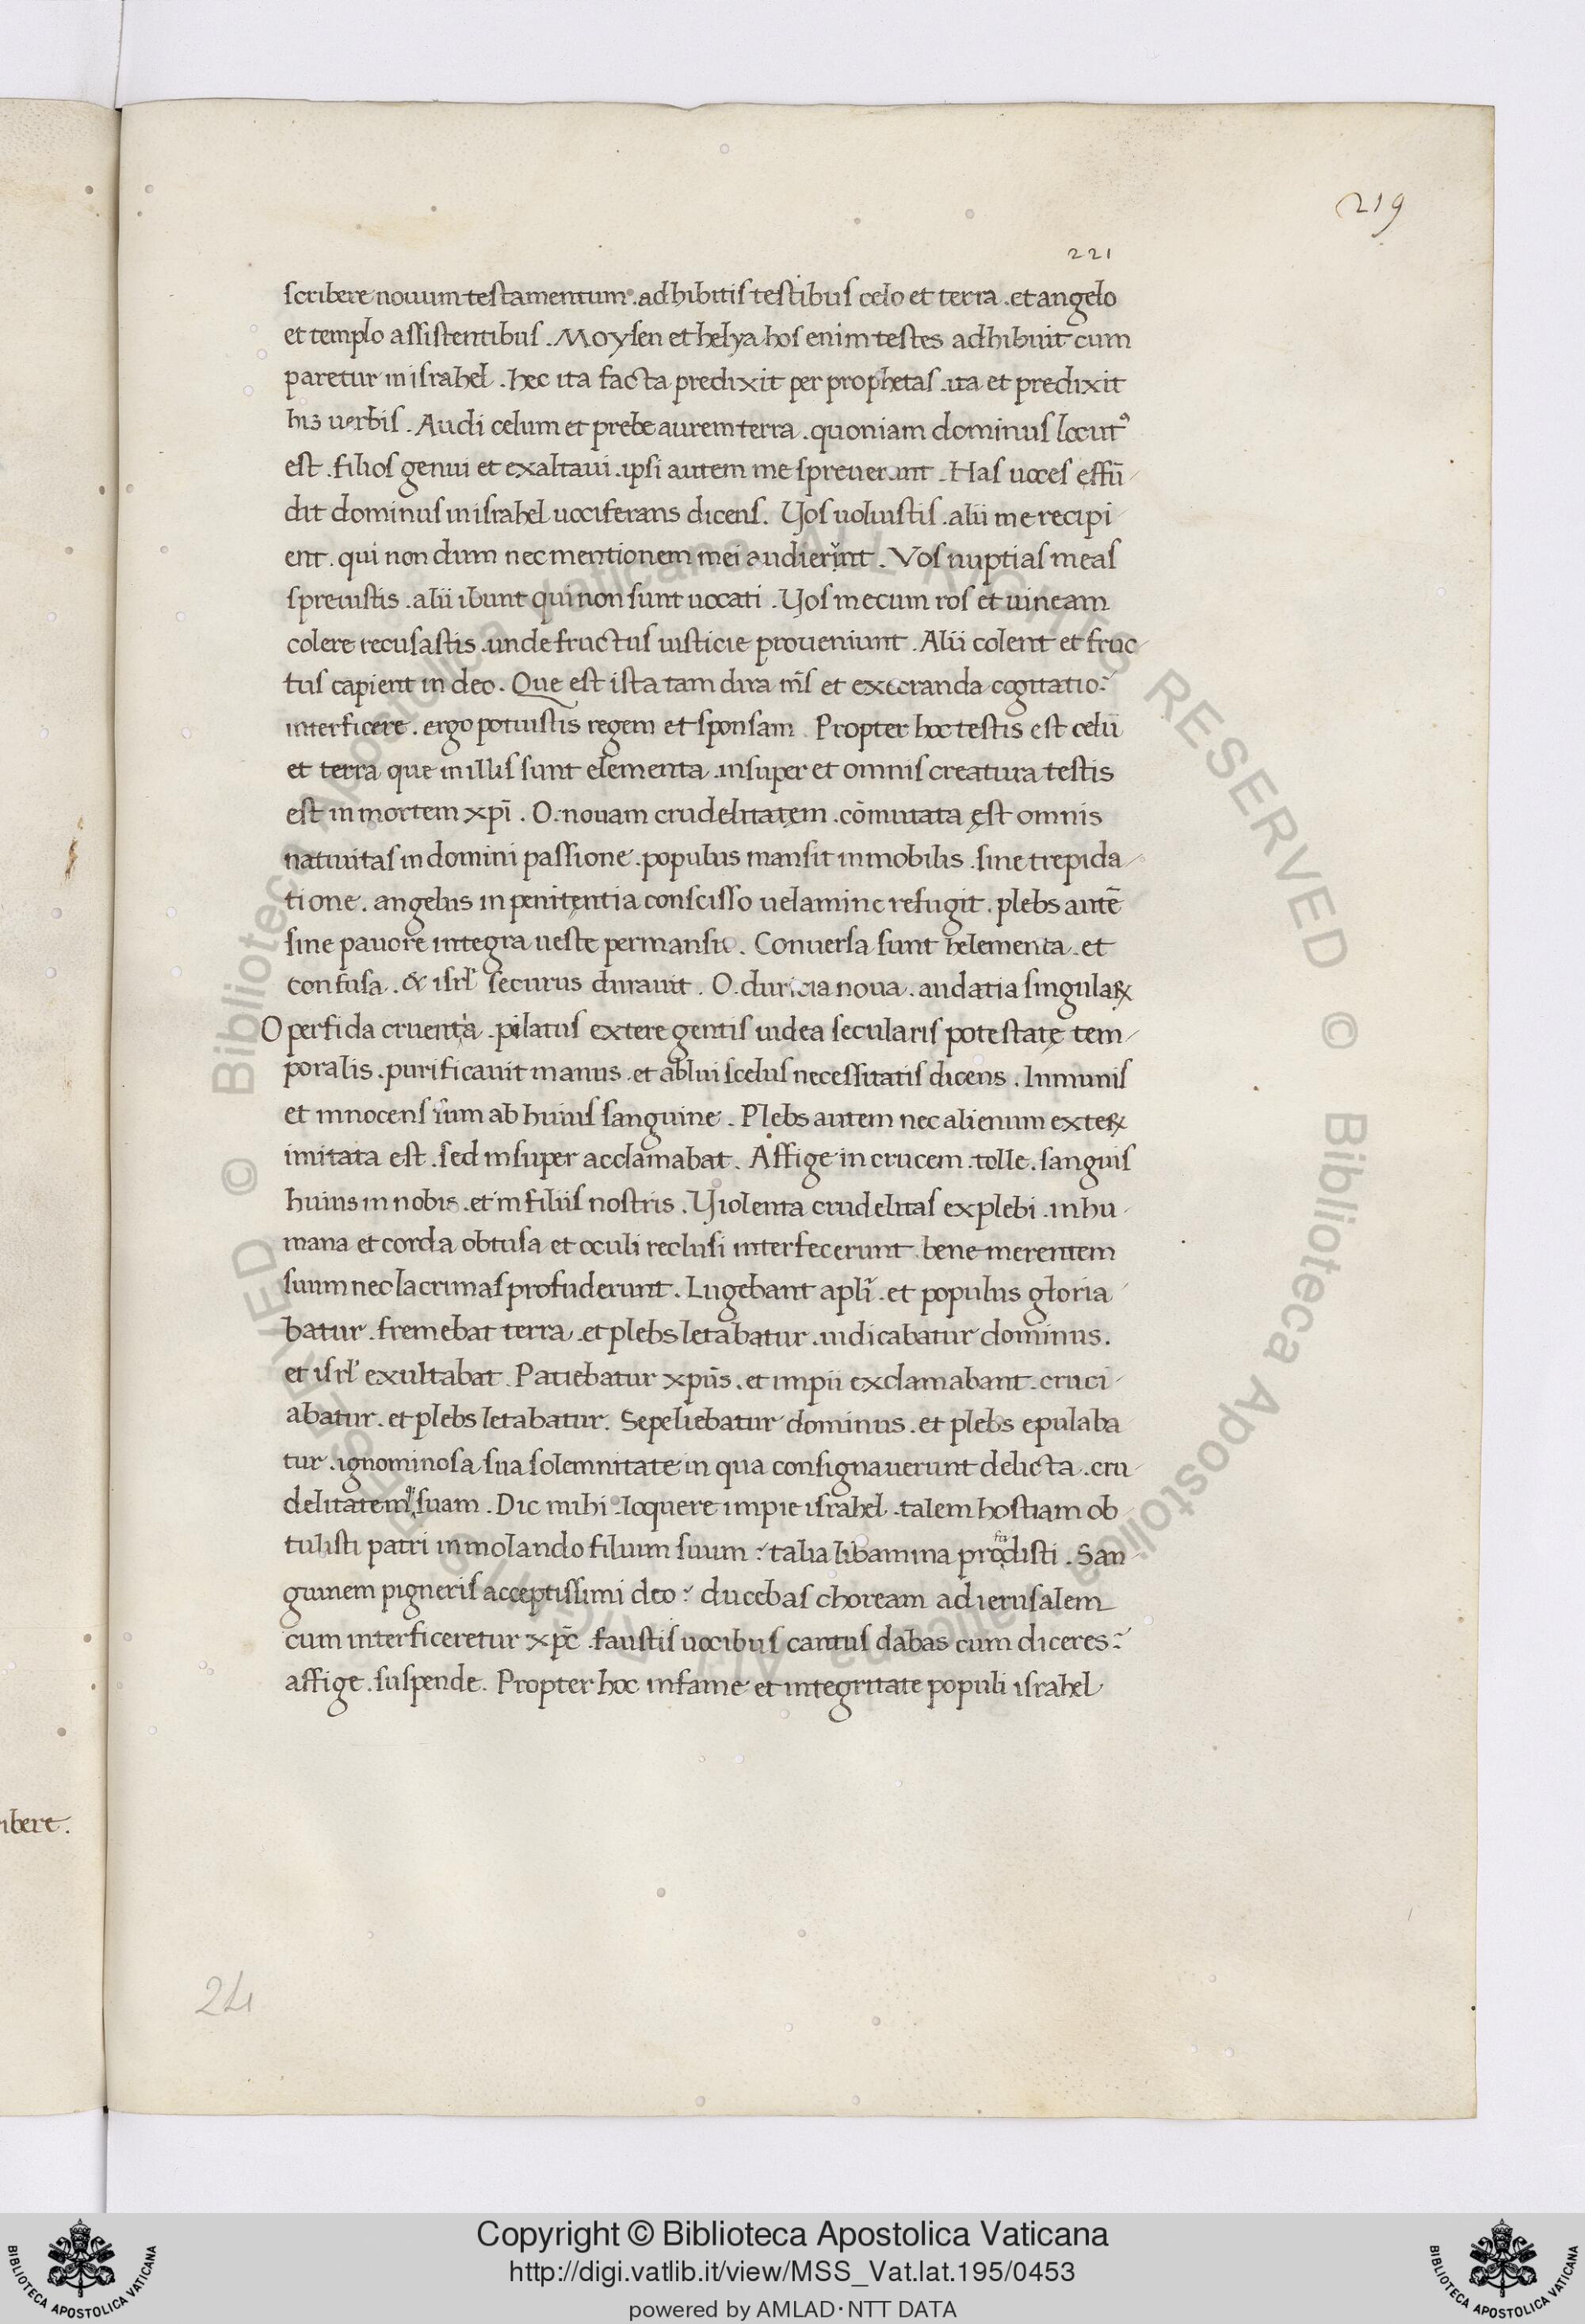 219
221
scribere nouum testamentum .adhibitis testibus celo et terra .et angelo
et templo assistentibus . Moysen et helya hos enim testes adhibuit cum
paretur in israhel . hec ita facta predixit per prophetas .ita et predixit
his uerbis . Audi celum et prebe aurem terra .quoniam dominus locutꝰ
est .filios genui et exaltaui .ipsi autem me spreuerunt . Has uoces effū
dit dominus in israhel uociferans dicens. Vos uoluistis .alii me recipi
ent. qui non dum nec mentionem mei audierint . Vos nuptias meas
spreuistis .alii ibunt qui non sunt uocati . Vos mecum ros et uineam
colere recusastis .unde fructus iusticie proueniunt . Alii colent et fruc
tus capient in deo. Que est ista tam dira m̄s et execranda cogitatio?
interficere . ergo potuistis regem et sponsam . Propter hoc testis est celū
et terra que in illis sunt elementa .insuper et omnis creatura testis
est in mortem xp̄i . O. nouam crudelitatem .cōmutata est omnis
natiuitas in domini passione .populus mansit inmobilis .sine trepida
tione. angelus in penitentia conscisso uelamine refugit. plebs autē
sine pauore integra ueste permansit . Conuersa sunt helementa .et
confusa . & isrl' securus durauit . O. duricia noua .audatia singulaꝝ
O perfida cruenta .pilatus extere gentis iudea secularis potestate tem
poralis .purificauit manus .et ablui scelus necessitatis dicens . Inmunis
et innocens sum ab huius sanguine . Plebs autem nec alienum exteꝝ
imitata est .sed insuper acclamabat . Affige in crucem .tolle .sanguis
huius in nobis .et in filiis nostris . Violenta crudelitas explebi .inhu
mana et corda obtusa et oculi reclusi interfecerunt bene merentem
suum nec lacrimas profuderunt . Lugebant apl̄i .et populus gloria
batur .fremebat terra .et plebs letabatur .iudicabatur dominus .
et isrl' exultabat . Patiebatur xp̄us .et impii exclamabant .cruci
abatur .et plebs letabatur. Sepeliebatur dominus .et plebs epulaba
tur .ignominosa sua solemnitate in qua consignauerunt delicta .cru
delitatem suam . Dic mihi loquere impie israhel .talem hostiam ob
tulisti patri inmolando filium suum? talia libamina prodisti . San
guinem pigneris acceptissimi deo? ducebas choream ad ierusalem
cum interficeretur xp̄c .faustis uocibus cantus dabas cum diceres?
affige .suspende. Propter hoc infame et integritate populi israhel
ibere.
24
Copyright © Biblioteca Apostolica Vaticana
http://digi.vatlib.it/view/MSS_Vat.lat.195/0453
powered by AMLAD·NTT DATA
BIBLIOTECA APOSTOLICA VATICANA
BIBLIOTECA APOSTOLICA VATICANA